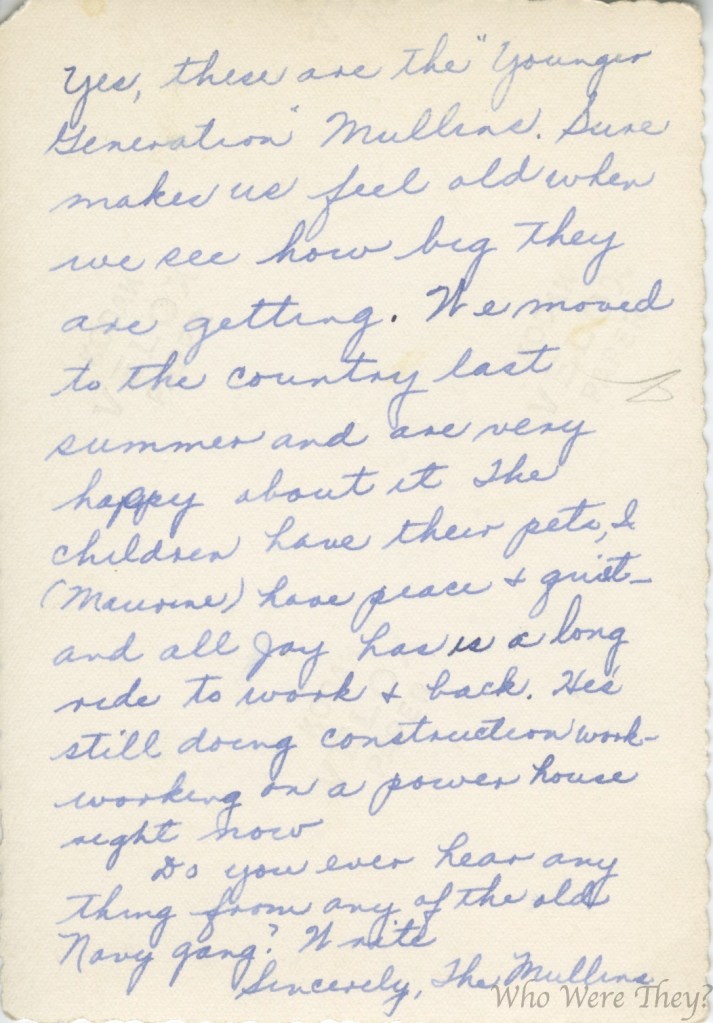 Yes, these are the "Younger
Generation" Mullins. Sure
makes us feel old when
we see how big they
are getting. We moved
to the country last
summer and are very
happy about it The
children have their pets, I
(Maurine) have peace & quiet-
and all Jay has is a long
ride to work & back. He's
still doing construction work-
working on a power house
right now
Do you ever hear any
thing from any of the old
Navy gang? Write
Sincerely, The Mullins
Who Were They?